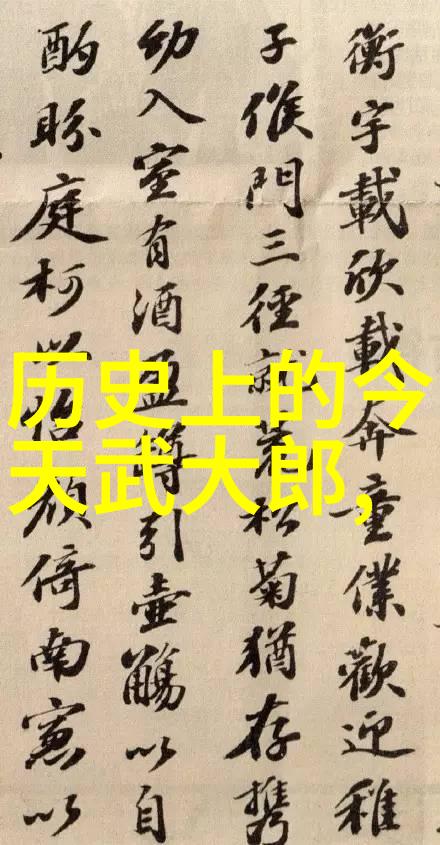 历史上的今
天武大郎,
衡宇載欣載奔童僕歡迎稚
子候門三徑就荒松菊猶存携
幼入室有酒盈罇引壺觴以自
酌眄庭柯以怡顏倚南窓以